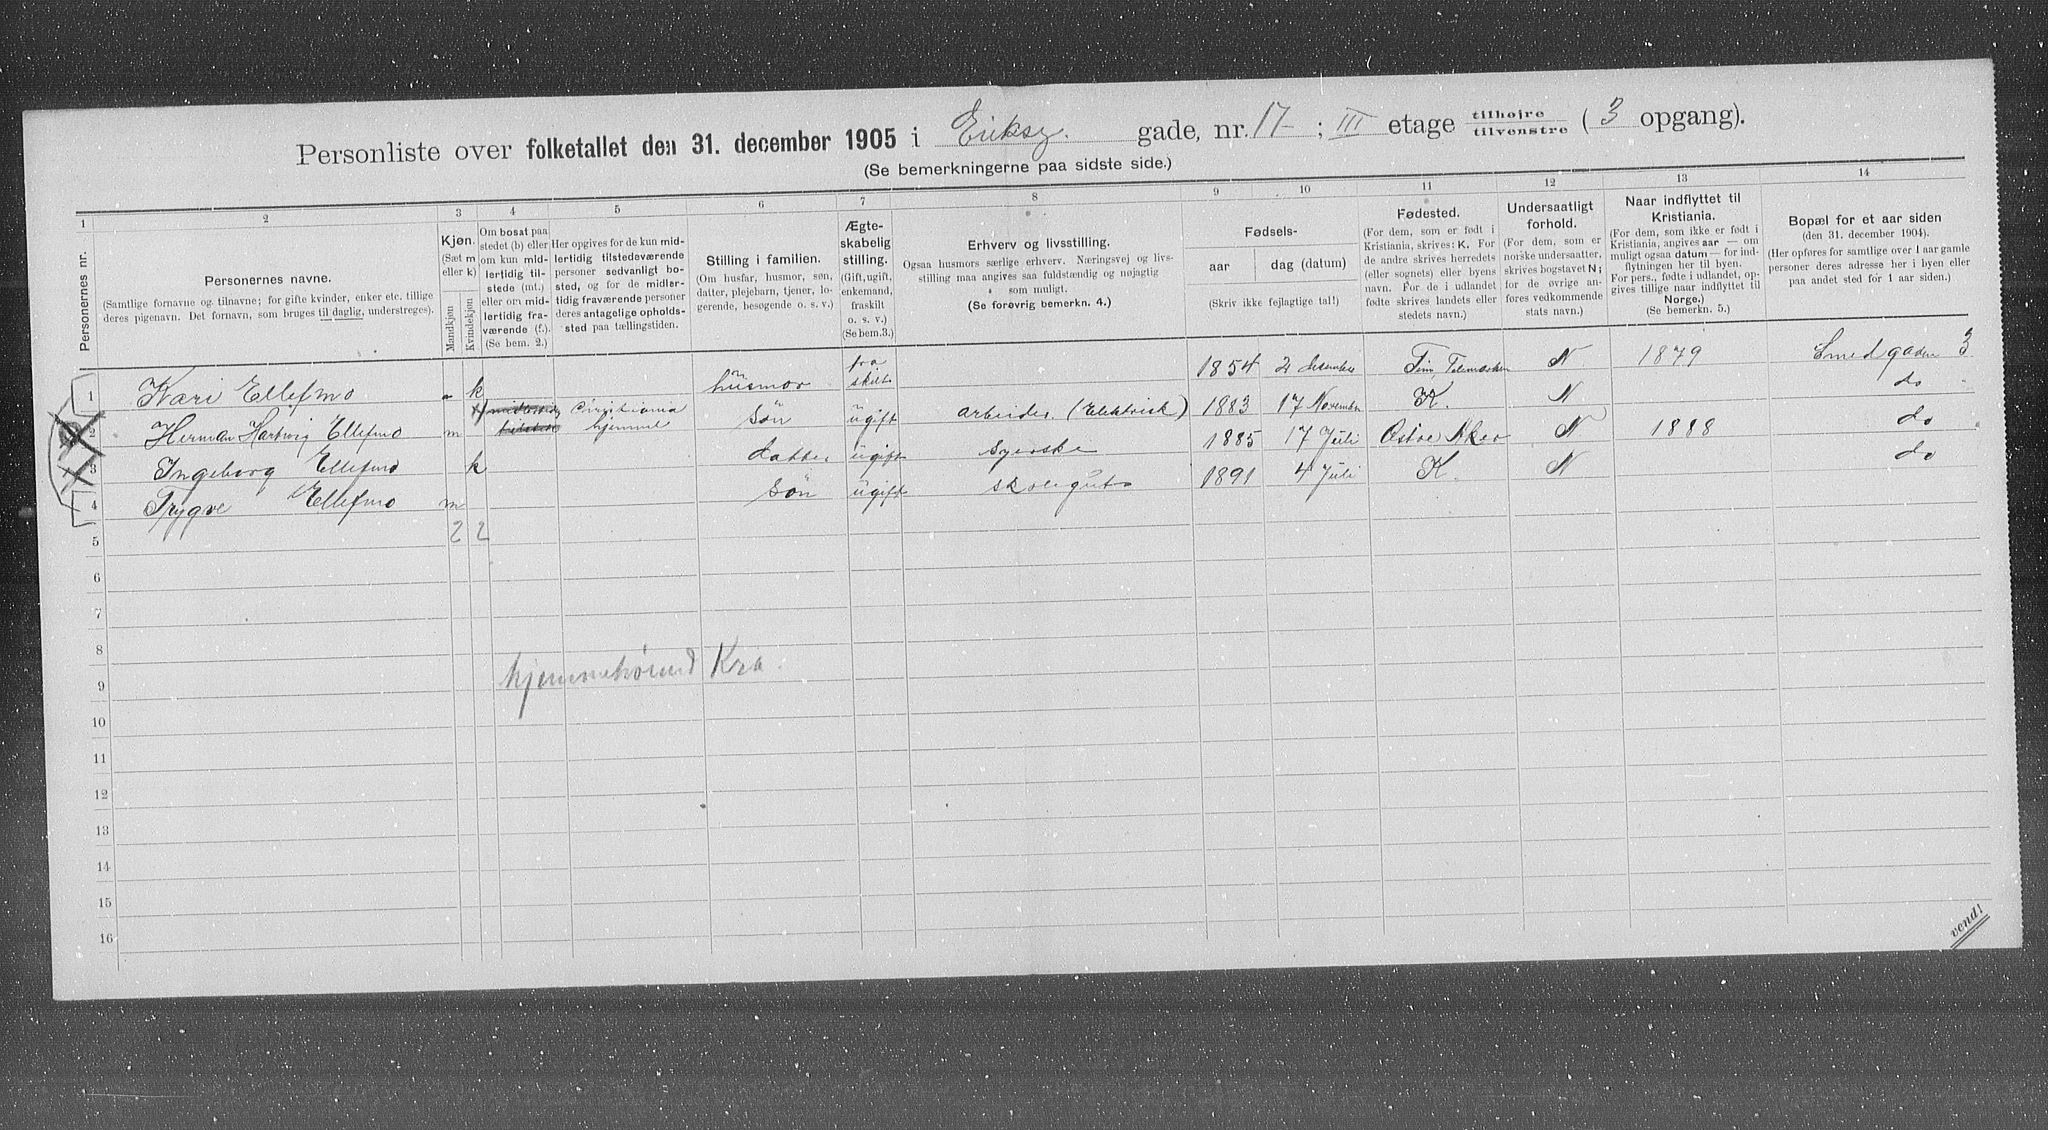 Personliste over folketallet den 31. december 1905 i Eriksg. gade, nr. 17 ; III etage tilhøjre / tilvenstre ( 3 opgang).
(Se bemerkningerne paa sidste side.)
1 2 3 4 5 6 7 8 9 10 11 12 13 14
Personernes nr.
Personernes navne.
(Samtlige fornavne og tilnavne; for gifte kvinder, enker etc. tillige
deres pigenavn. Det fornavn, som bruges til daglig, understreges).
Kjøn.
(Sæt m
eller k)
Mandkjøn
Kvindekjøn
Om bosat paa
stedet (b) eller
om kun mid-
lertidig til-
stede (mt.)
eller om mid-
lertidig fra-
værende (f.).
(Se bem. 2.)
Her opgives for de kun mid-
lertidig tilstedeværende
personer sedvanligt bo-
sted, og for de midler-
tidig fraværende personer
deres antagelige opholds-
sted paa tællingstiden.
Stilling i familien.
(Om husfar, husmor, søn,
datter, plejebarn, tjener, lo-
gerende, besøgende o. s. v.)
Ægte-
skabelig
stilling.
(Gift, ugift,
enkemand,
fraskilt
o. s. v.)
(Se bem.3.)
Erhverv og livsstilling.
Ogsaa husmors særlige erhverv. Næringsvej og livs-
stilling maa angives saa fuldstændig og nøjagtig
som muligt.
(Se forøvrig bemerkn. 4.)
Fødsels-
aar
dag (datum)
(Skriv ikke fejlagtige tal!)
Fødested.
(For dem, som er født i
Kristiania, skrives: K. For
de andre skrives herredets
(eller sognets) eller byens
navn. For de i udlandet
fødte skrives landets eller
stedets navn.)
Undersaatligt
forhold.
(For dem, som er
norske undersaatter,
skrives bogstavet N;
for de øvrige an-
føres vedkommende
stats navn.)
Naar indflyttet til
Kristiania.
(For dem, som ikke er født i
Kristiania, angives aar — om
muligt ogsaa datum — for ind-
flytningen her til byen.
For pers., fødte i udlandet, op-
gives tillige naar indflyttet til
Norge.)
(Se bemerkn. 5.)
Bopæl for et aar siden
(den 31. december 1904).
(Her opføres for samtlige over 1 aar gamle
personer deres adresse her i byen eller
paa andet sted for 1 aar siden.)
1 Kari Ellefmo k husmor fraskilt 1854 2 desember Tin, Telemarken N 1879 Smedgaden 3
2 Herman Hartvig Ellefmo m Cristiania hjemme Søn ugift arbeider (Elektrisk) 1883 17 November K. N do
3 Ingeborg Ellefmo k datter ugift Syerske 1885 17 Juli Østre Aker N 1888 do
4 Trygve Ellefmo m Søn ugift skolegut 1891 4 Juli K. N do
5 2 2
6
7
8
9 hjemmehørend Kra.
10
11
12
13
14
15
16
vend!